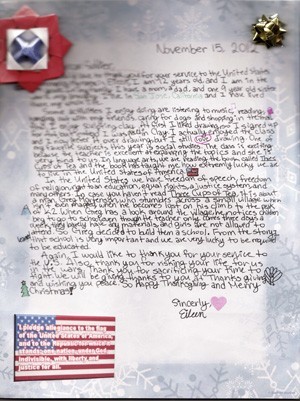 November 15, 2012
you for your service to the United States
I am 12 years old, and I am in the
I have a mom, a dad, and one 9 year old
I enjoy doing are listening to music, reading,
friends, caring for dogs and shopping in thrift
class. At first I
Clay. I actually enjoyed the class
drawing, but I still One of
this year is social studies. The class is exciting
teacher is excellent at explaining the topics and she is
In language arts, we are reading the book called Three
Cups of Tea and the book has taught me how extremely lucky we are
to live in the United States of America
In the United States, we have freedom of speech, freedom
of religion, right to an education, equal rights, a justice system and
many others. In case you haven't read Three Cups of Tea, it is about
a man, Greg Mortenson, who stumbles across a small village when
he becomes lost on his climb to the peak
of K2. When Greg has a look around the village, he notices children
try to go to school even though the teacher only comes three days a
week, they barely have any materials, and girls are not allowed to
attend. So Greg decided to build them a school. From the story, I
that school is very important and we are very lucky to be required
to be educated.
Again, I would like to thank you for your service to
the U.S. Also, thank you for risking your life for us
in the Thank you for sacrificing your time to
We will be giving thanks to you at Thanksgiving
and wishing you peace. So Happy Thanksgiving and Merry
Christmas!
Sincerely,
Eileen
I pledge allegiance to the flag
of the United States of America,
and to the Republic for which it
stands: one nation, under God,
indivisible, with liberty and
justice for all.